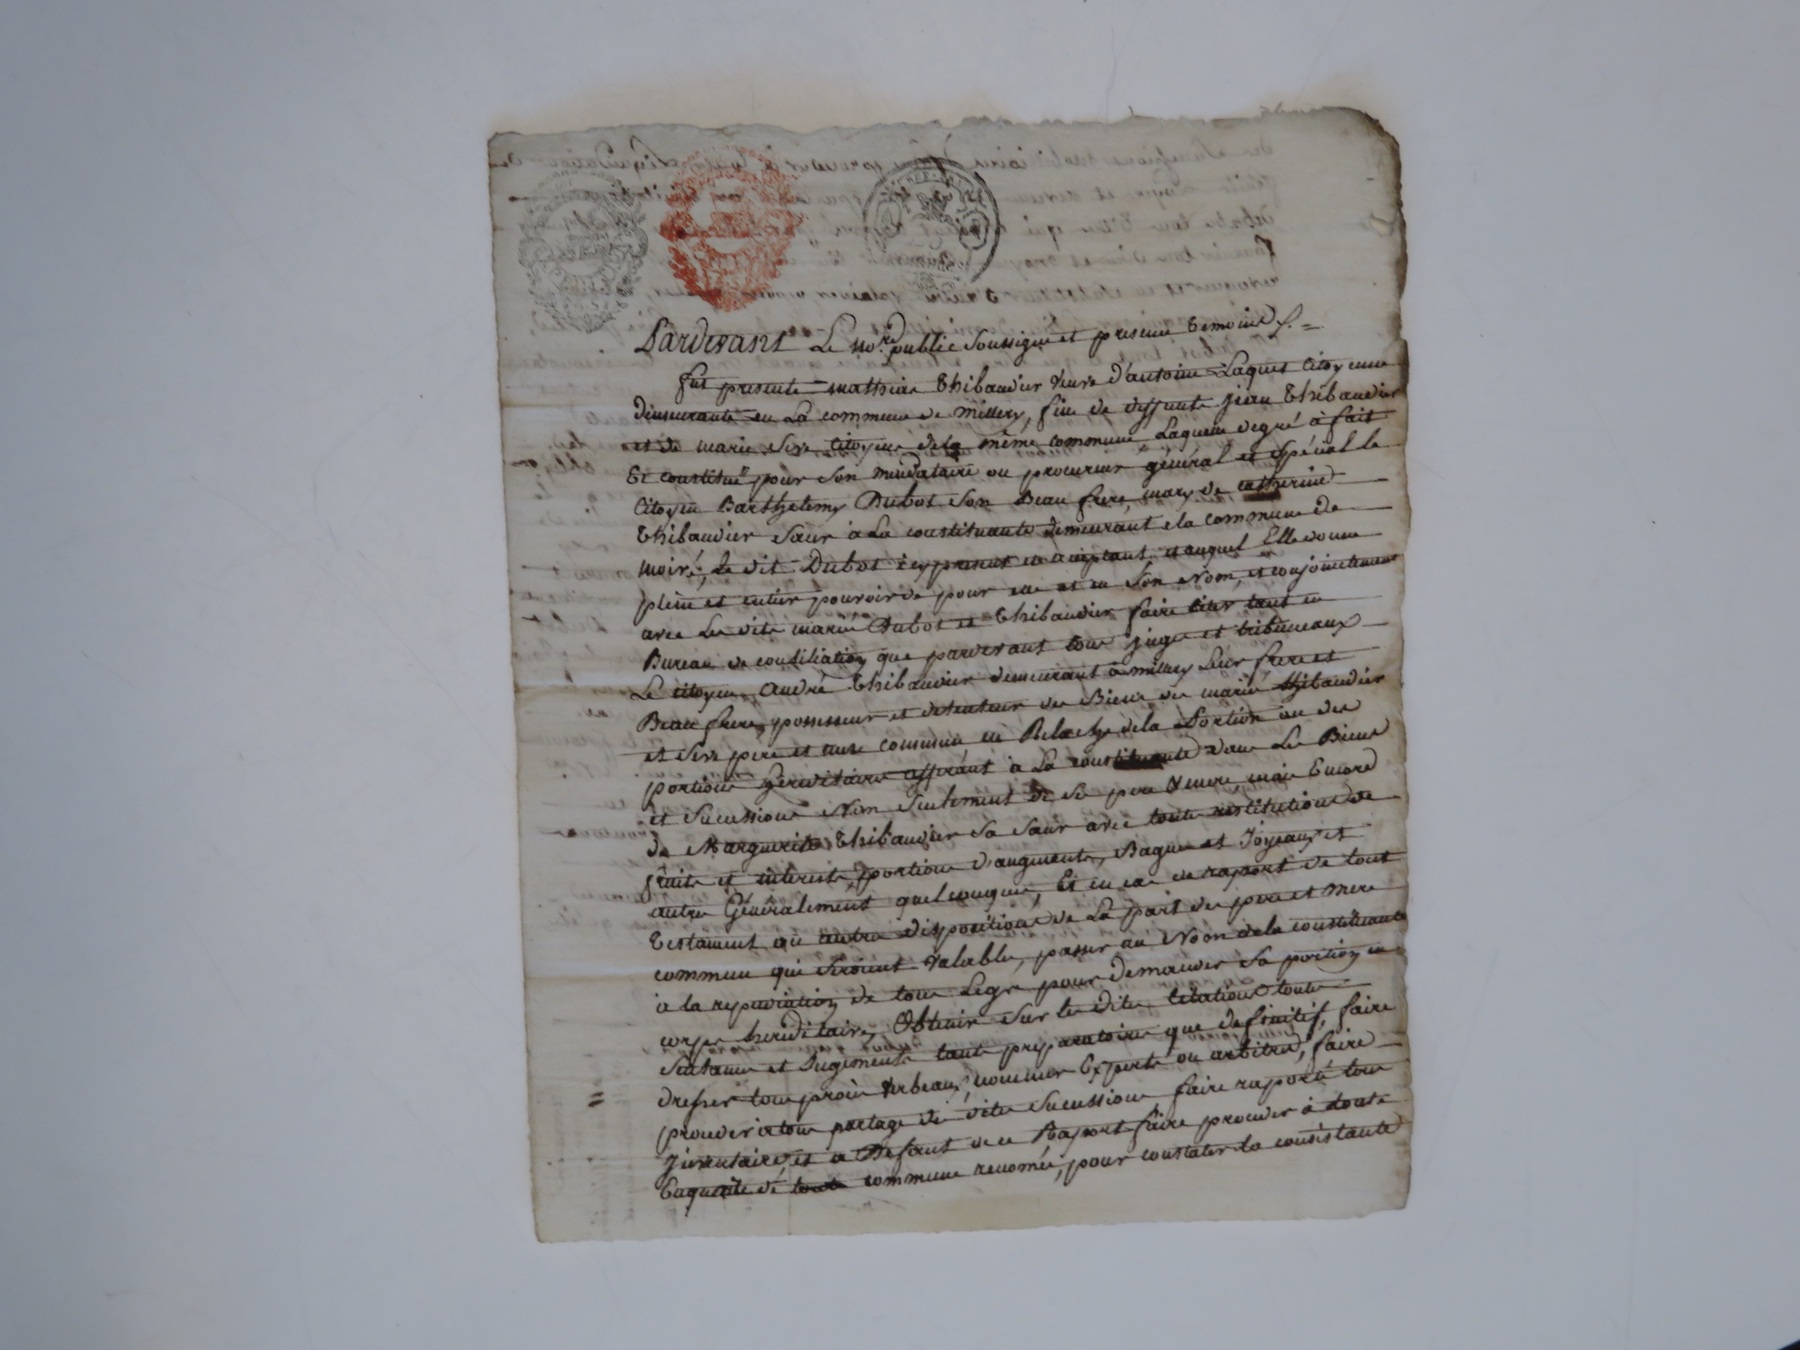 Pardevant Le no.re public Soussigné et presens temoins
fut presente mathiae Thibaudier veuve d'antoine Laques citoyenne
demeurante en La commune de millery, fille de deffunts jean Thibaudier
et de marie Sive citoyens dela même commune Laquelle de gré à fait
Et constitué pour Son mendataire ou procureur général et spécial le
Citoyen Barthelemy Dubot Son Beau frere, mary de catherine
Thibaudier Sœur à La constituante demeurant a la commune de
moiré, Le dit Dubot icy present et aceptant, et auquel Elle donne
plein et entier pouvoir de pour elle et en Son Nom, et conjointement
avec Les dits mariés Dubot et Thibaudier faire citer tant en
Bureau de consiliation que pardevant tous juges et tribuneaux
Le citoyen André Thibaudier demeurant à millery Leur frere et
Beau frere, possesseur et detenteur des Biens des mariés thibaudier
et Sive pere et mere communs en Relache dela Portion ou des
portions hereditaires afferant à La constituante dans Les Biens
et Sucussions Non Seulement de Se pere & mere, mais Encore
de Marguerite Thibaudier Sa Sœur avec toute restitutions de
fruits et interests, portions d'augments, Bagues et Joyeaux et
autres Généralement quelconques, Et en cas de raport de tout
testament ou autres dispositions de La part des pere et mere
communs qui Seroient valables, passer au Nom dela constituante
à la repudiation de tous Legs pour demander Sa portion en
corps hereditaires, Obtenir Sur les dites citations toutes
Sentances et Jugements tants preparatoires que definitifs, faire
dresser tous procès verbeaux, nommer Experts ou arbitres, faire
proceder à tous partage de dites Sucussions faire raporté tous
Jnventaires, et a Defaut de ce Raport faire proceder à toute
Enquette de commune renomée, pour constater la consistante